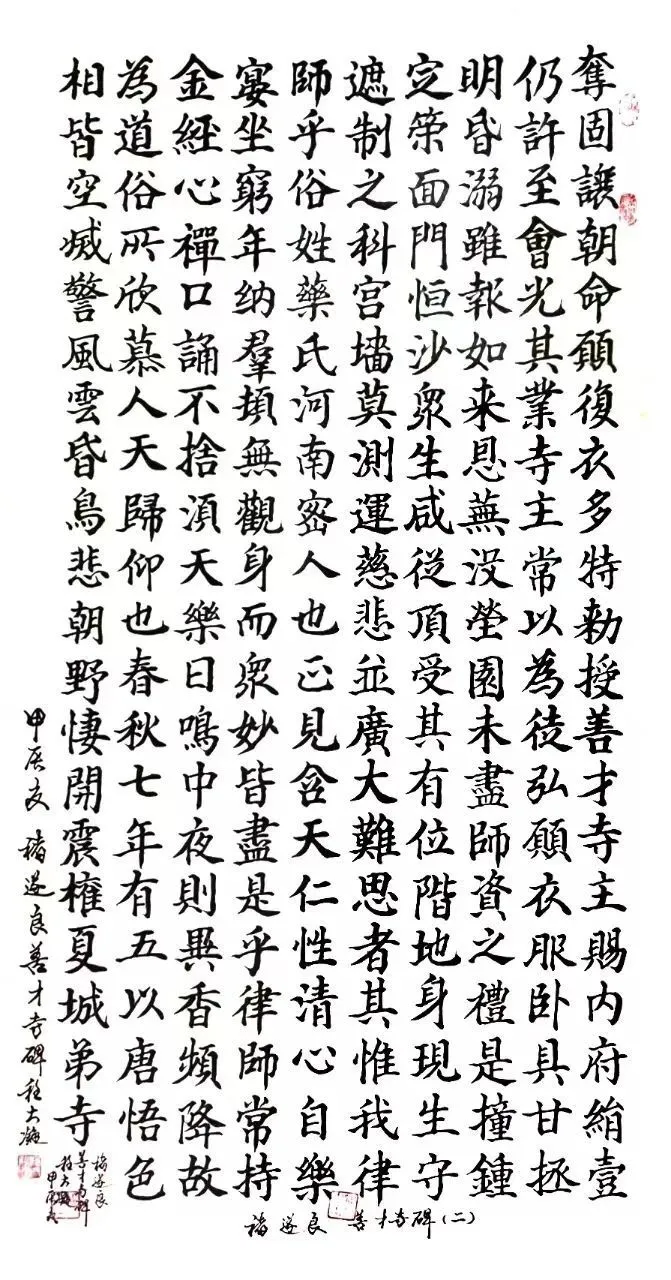 奪固讓朝命願復衣多特勑授善才寺主賜内府絹壹
仍許至會光其業寺主常以為徒弘願衣服卧具甘拯
明昏溺雖報如来恩蕪没塋園未盡師資之禮是撞鍾
定榮面門恒沙衆生咸從頂受其有位階地身現生守
遮制之科宫墻莫測運慈悲並廣大難思者其惟我律
師乎俗姓藥氏河南密人也正見含天仁性清心自樂
宴坐窮年纳羣頍無觀身而衆妙皆盡是乎律師常持
金經心禪口誦不捨湏天樂日鳴中夜則異香頻降故
為道俗所欣慕人天歸仰也春秋七年有五以唐悟色
相皆空烕警風雲昏鳥悲朝野悽開震榷夏城弟寺
甲辰夏 褚遂良善才寺碑程大
褚遂良
善才寺碑
程大
甲辰
褚遂良 善才寺碑(二)